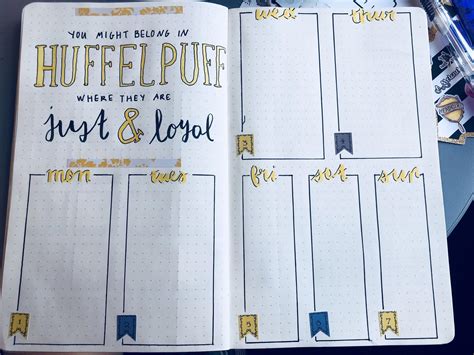 YOU MIGHT BELONG IN
HUFFELPUFF
WHERE THEY ARE
just & loyal
mon
tues
wed
thur
fri
sat
sun